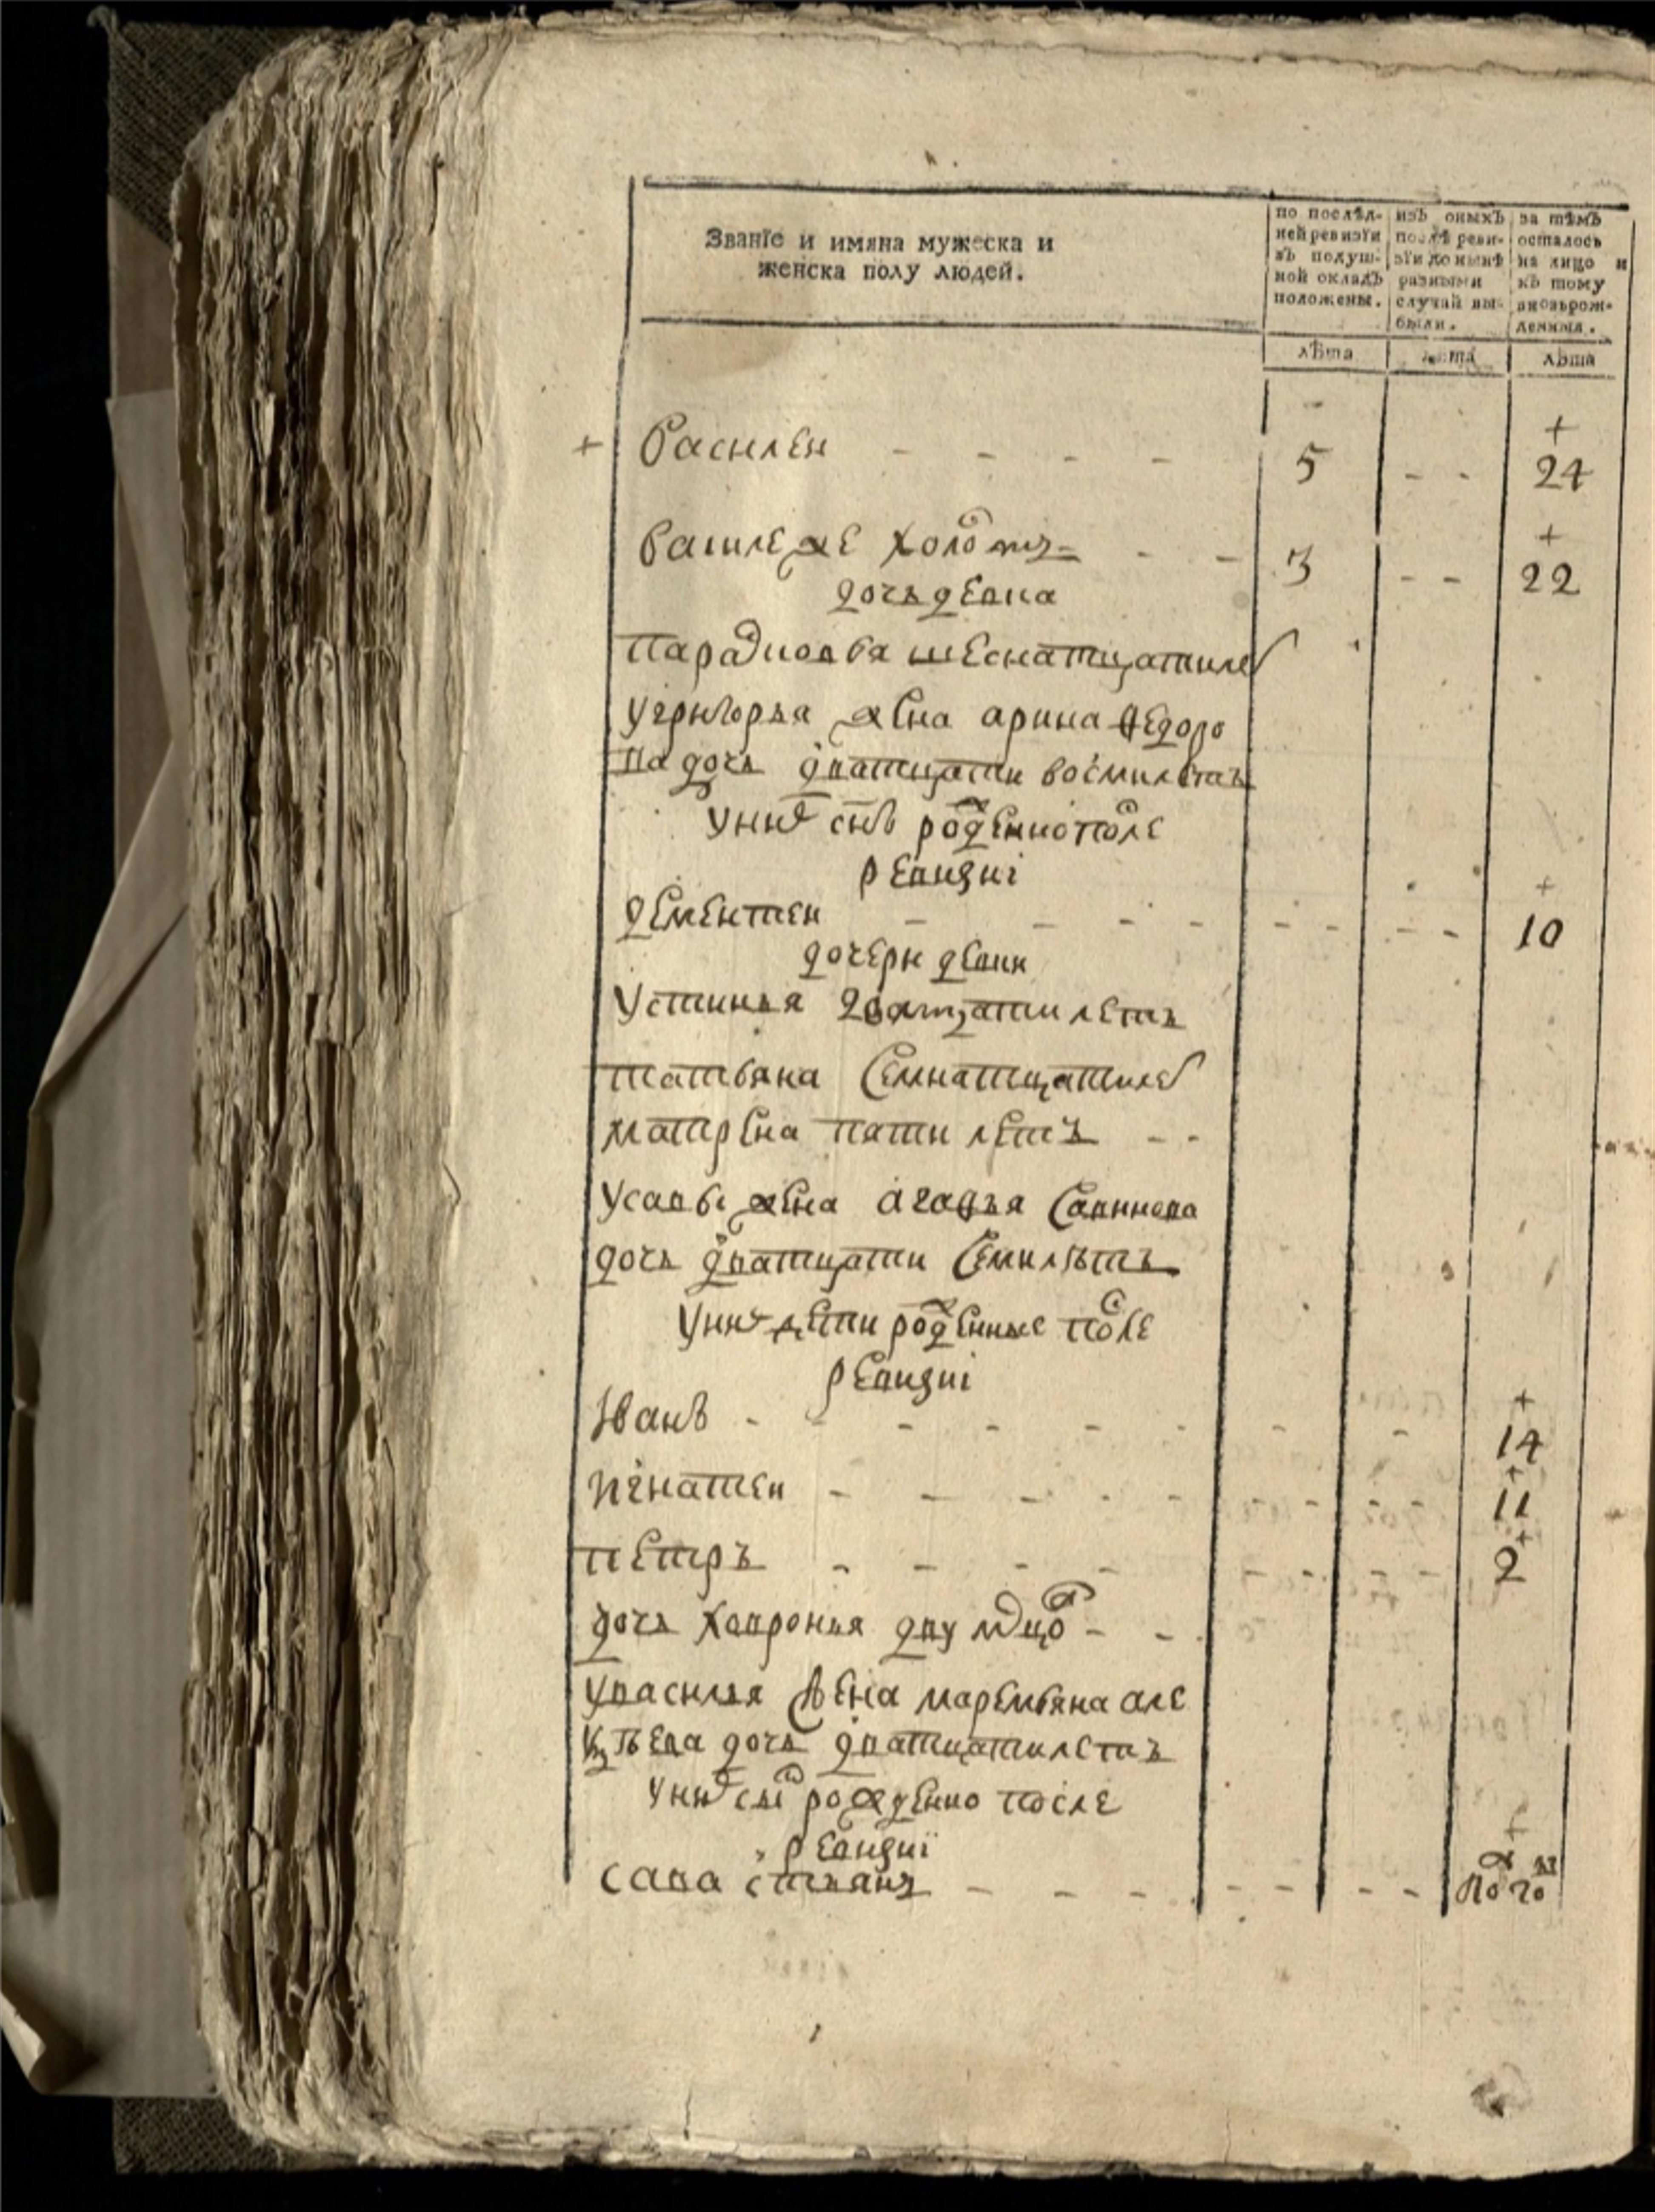 Званїе и имяна мужеска и
женска полу людей.
по послѣд-
ней ревизїи
въ подуш-
ной окладъ
положены.
изъ оныхъ
послѣ реви-
зїи до нынѣ
разными
случай вы-
были.
за тѣмъ
осталось
на лицо и
къ тому
вновьрож-
денныя.
лѣта лѣта лѣта
+ Василеи - - - - 5 - - + 24
василеже холостъ - - 3 - - + 22
дочь девка
парасковья шеснатцатилет
угригорья жена арина федоро
ва дочь дватцати восмилетъ
унихъ снъ рожденно после
ревизиi
дементеи - - - - - - - - + 10
дочери девки
устинья 20атцати летъ
татьяна семнатцатилет
матрена пяти летъ - -
усавы жена агафья савинова
дочь дватцати семилѣтъ
унихъ дети рожденные после
ревизиi
Иванъ - - - - - - - - + 14
игнатеи - - - - - - - - - + 11
петръ - - - - - - - - + 2
дочь хавронья двух мцовъ - -
увасилья жена маремьяна але
ксѣева дочь дватцатилетъ
унихъ снъ рожденно после
ревизиї
сава степанъ - - - - - - - +